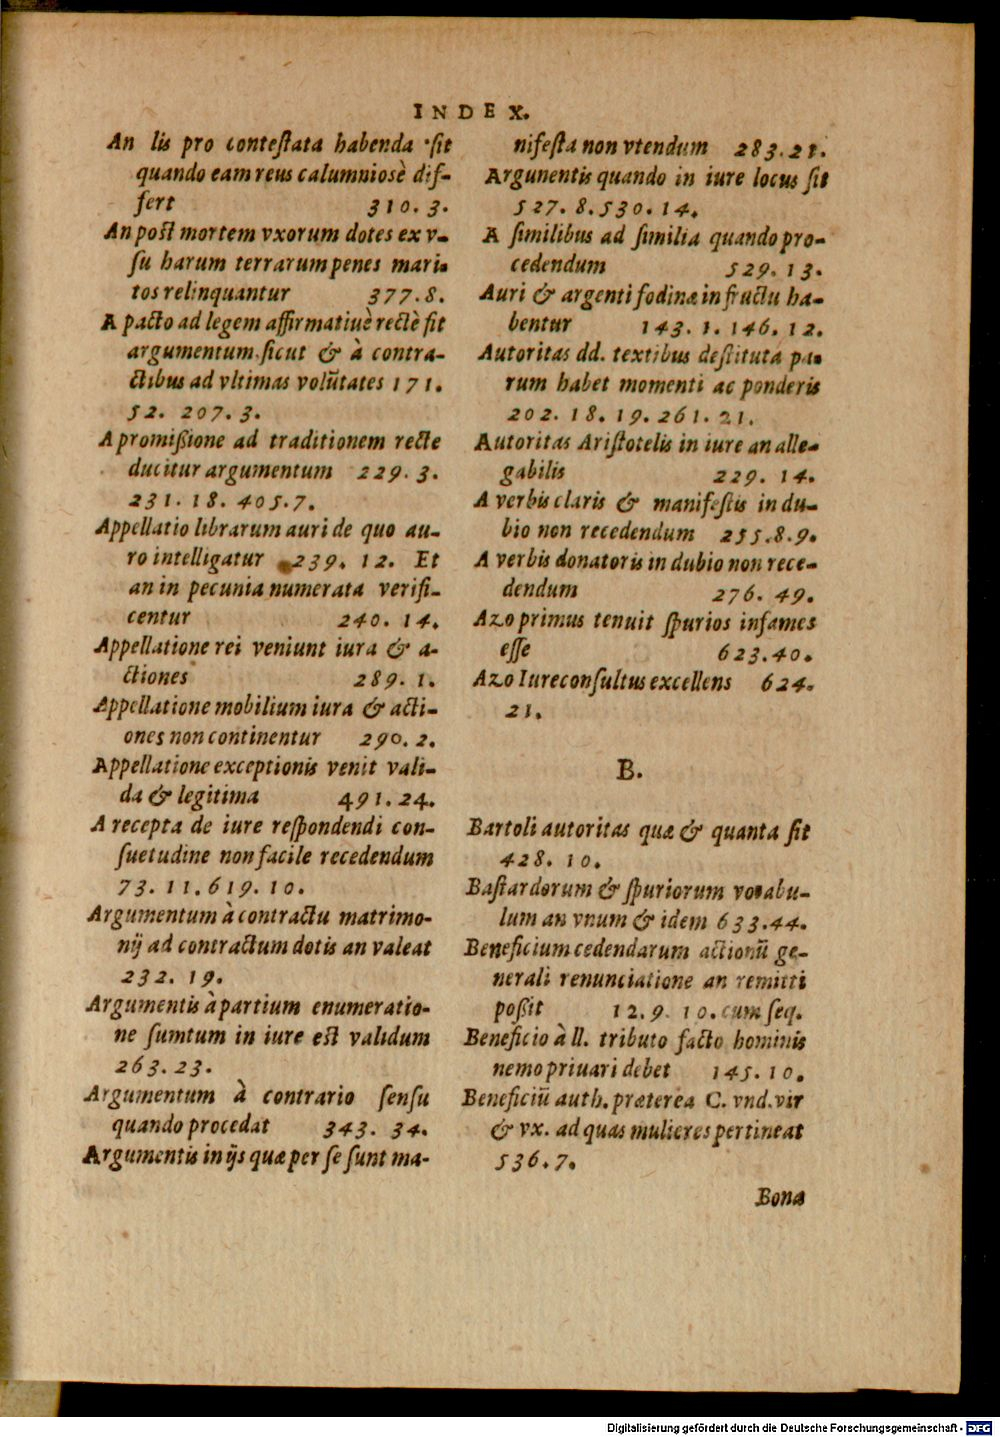 INDEX.
An lis pro conteſtata habenda ſit
quando eam reus calumnioſè dif-
fert 310. 3.
An poſt mortem vxorum dotes ex v-
ſu harum terrarum penes mari-
tos relinquantur 377. 8.
A pacto ad legem affirmatiuè rectè fit
argumentum ſicut & à contra-
ctibus ad vltimas volūtates 171.
52. 207. 3.
A promiſſione ad traditionem recte
ducitur argumentum 229. 3.
231. 18. 405. 7.
Appellatio librarum auri de quo au-
ro intelligatur 239. 12. Et
an in pecunia numerata verifi-
centur 240. 14.
Appellatione rei veniunt iura & a-
ctiones 289. 1.
Appellatione mobilium iura & acti-
ones non continentur 290. 2.
Appellatione exceptionis venit vali-
da & legitima 491. 24.
A recepta de iure reſpondendi con-
ſuetudine non facile recedendum
73. 11. 619. 10.
Argumentum à contractu matrimo-
nij ad contractum dotis an valeat
232. 19.
Argumentis à partium enumeratio-
ne ſumtum in iure eſt validum
263. 23.
Argumentum à contrario ſenſu
quando procedat 343. 34.
Argumentis in ijs quæ per ſe ſunt ma-
nifeſta non vtendum 283. 21.
Argunentis quando in iure locus ſit
527. 8. 530. 14.
A ſimilibus ad ſimilia quando pro-
cedendum 529. 13.
Auri & argenti fodinæ in fructu ha-
bentur 143. 1. 146. 12.
Autoritas dd. textibus deſtituta pa-
rum habet momenti ac ponderis
202. 18. 19. 261. 21.
Autoritas Ariſtotelis in iure an alle-
gabilis 229. 14.
A verbis claris & manifeſtis in du-
bio non recedendum 255. 8. 9.
A verbis donatoris in dubio non rece-
dendum 276. 49.
Azo primus tenuit ſpurios infames
eſſe 623. 40.
Azo Iureconſultus excellens 624.
21.
B.
Bartoli autoritas quæ & quanta ſit
428. 10.
Baſtardorum & ſpuriorum vocabu-
lum an vnum & idem 633. 44.
Beneficium cedendarum actionū ge-
nerali renunciatione an remitti
poſſit 12. 9. 10. cum ſeq.
Beneficio à ll. tributo facto hominis
nemo priuari debet 145. 10.
Beneficiū auth. præterea C. vnd. vir
& vx. ad quas mulieres pertineat
536. 7.
Bona
Digitalisierung gefördert durch die Deutsche Forschungsgemeinschaft - DFG